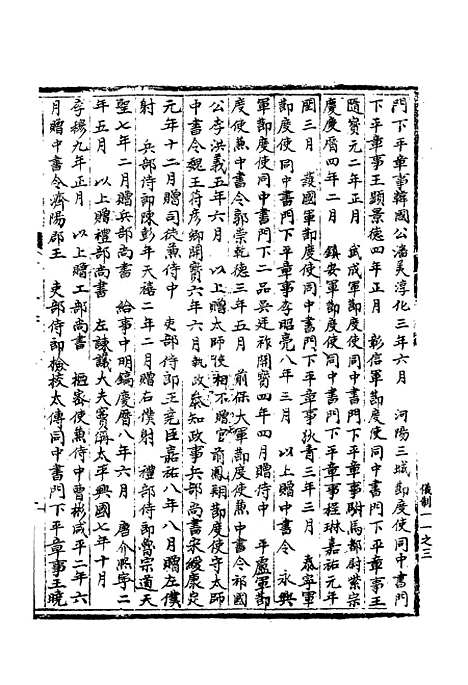 門下平章事韓國公潘美淳化三年六月　河陽三城節度使同中書門
下平章事王顯景德四年正月　彰信軍節度使同中書門下平章事王
隨寶元二年正月　武成軍節度使同中書門下平章事駙馬都尉柴宗
慶慶曆四年二月　鎮安軍節度使同中書門下平章事程琳嘉祐元年
閏三月　護國軍節度使同中書門下平章事狄青三年三月　泰寧軍
節度使同中書門下平章事李昭亮八年三月　以上贈中書令　永興
軍節度使同中書門下二品吳廷祚開寶四年四月贈侍中　平盧軍節
度使兼中書令郭崇乾德三年五月　前保大軍節度使兼中書令祁國
公李洪義五年六月　以上贈太師　前鳳翔節度使守太師
中書令魏王符彥卿開寶六年六月　參知政事兵部尚書宋綬康定
元年十二月贈司徒兼侍中　吏部侍郎王堯臣嘉祐八年八月贈左僕
射　兵部侍郎陳彭年天禧二年二月贈右僕射　禮部侍郎曾宗道天
聖七年二月贈兵部尚書　給事中明鎬慶曆八年六月　唐介熙寧二
年五月　以上贈禮部尚書　左諫議大夫竇偁太平興國七年十月
李穆九年正月　以上贈工部尚書　樞密使侍中曹彬咸平二年六
月贈中書令濟陽郡王　吏部侍郎檢校太傅同中書門下平章事王曉
儀制一一之三